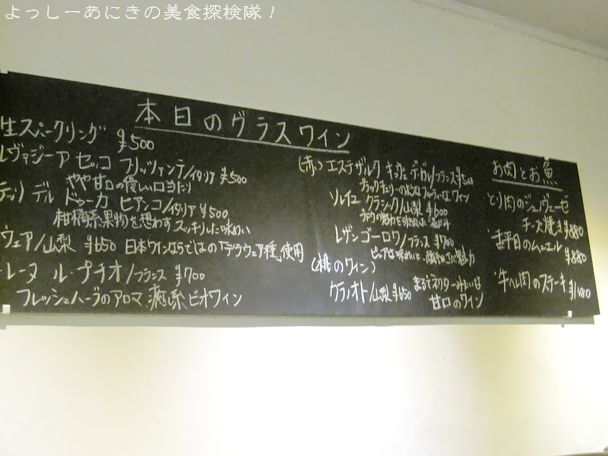 よっしーあにきの美食探検隊！
本日のグラスワイン
生スパークリング ¥500
レヴァジーア セッコ フリッツァンテ/イタリア ¥500
やや甘口の優しい口当たり
デル ドゥーカ ビアンコ/イタリア ¥500
柑橘系果物を想わすスッキリした味わい
ウェア/山梨 ¥650 日本ワインならではの「デラウェア種」使用
レーヌ ル・プチオ/フランス ¥700
フレッシュハーブのアロマ 癒し系ビオワイン
(赤) エステザルク フランス ¥500
ワイン
ソレイユ クラシック/山梨 ¥600
レザンゴーロワ/フランス ¥700
(桃のワイン)
ケラノオト/山梨 ¥650 まるでネクターみたいな
甘口のワイン
お肉とお魚
とり肉のジュヴェーゼ
チーズ焼き ¥880
舌平目のムニエル ¥880
牛ヘレ肉のステーキ ¥1480